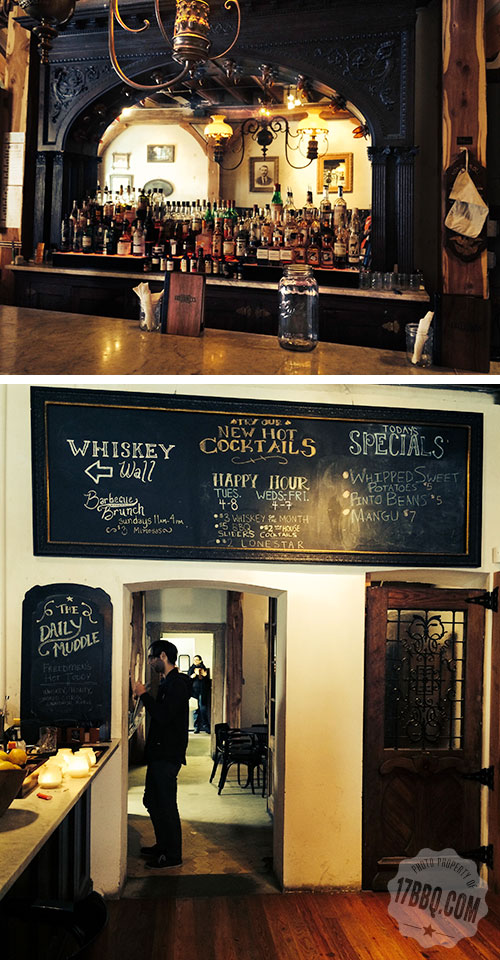 WHISKEY
Wall
Barbecue
Brunch
sundays 11am-4pm
$3 Mimosas
TRY OUR
NEW HOT
COCKTAILS
HAPPY HOUR
TUES. WEDS-FRI.
4-8 4-7
$3 WHISKEY OF THE MONTH
$5 BBQ SLIDERS
$2 OFF HOUSE COCKTAILS
$2 LONESTAR
TODAYS
SPECIALS
WHIPPED SWEET
POTATOES $5
PINTO BEANS $5
MANGU $7
THE
DAILY
MUDDLE
FREEDMEN'S
HOT TODDY
PHOTO PROPERTY OF
17BBQ.COM